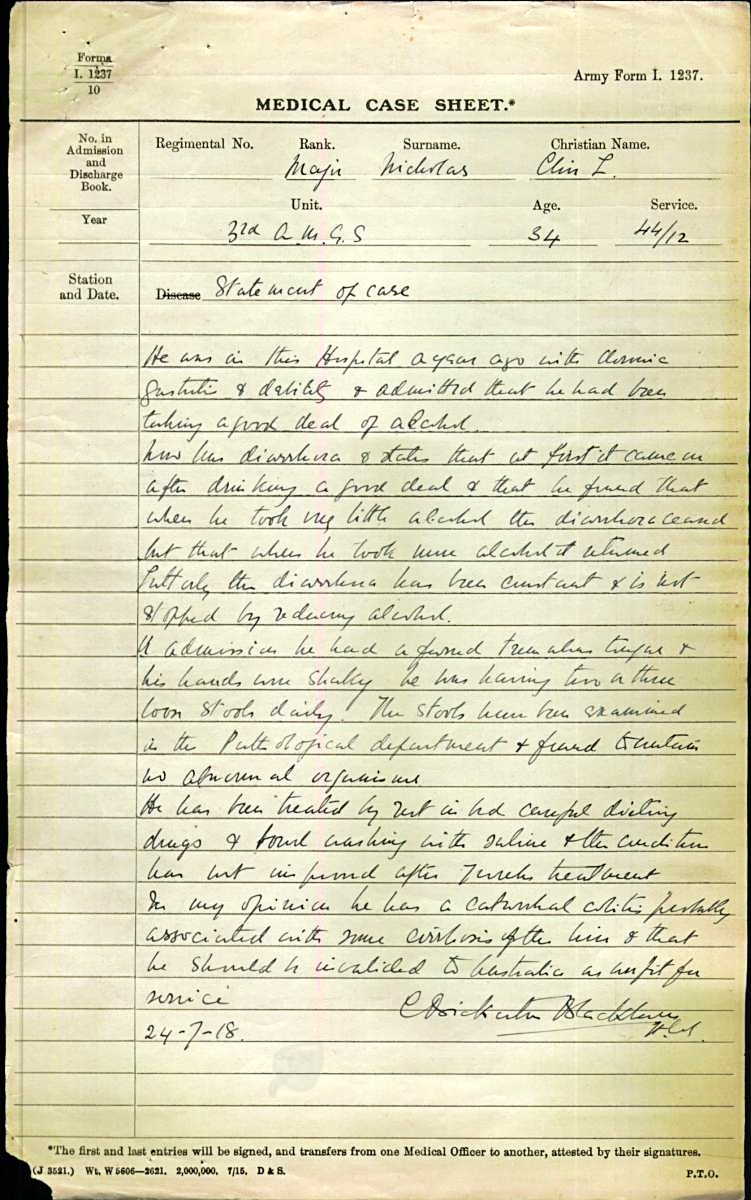 Forms
I. 1237
10
Army Form I. 1237.
MEDICAL CASE SHEET.*
No. in
Admission
and
Discharge
Book.
Year
Regimental No. Rank. Surname. Christian Name.
Major Nicholas L.
Unit. Age. Service.
3rd A. M. G. S 34 44/12
Station
and Date.
Disease Statement of case
He was in this Hospital a year ago with chronic
gastritis & debility & admitted that he had been
taking a good deal of alcohol.
now has diarrhoea & states that at first it came on
after drinking a good deal & that he found that
when he took very little alcohol the diarrhoea ceased
but that when he took more alcohol it returned
Latterly the diarrhoea has been constant & is not
stopped by reducing alcohol.
On admission he had a furred tremulous tongue &
his hands were shaky he was having two or three
loose stools daily. The stools have been examined
in the Pathological department & found to contain
no abnormal organisms
He has been treated by rest in bed careful dieting
drugs & bowel washing with saline & the condition
has not improved after 7 weeks treatment
In my opinion he has a catarrhal colitis probably
associated with some cirrhosis of the liver & that
he should be invalided to Australia as unfit for
service
C Bickerton Blackburn
24-7-18.
*The first and last entries will be signed, and transfers from one Medical Officer to another, attested by their signatures.
(J 3521.) Wt. W 5606—2621. 2,000,000. 7/15. D & S.
P.T.O.